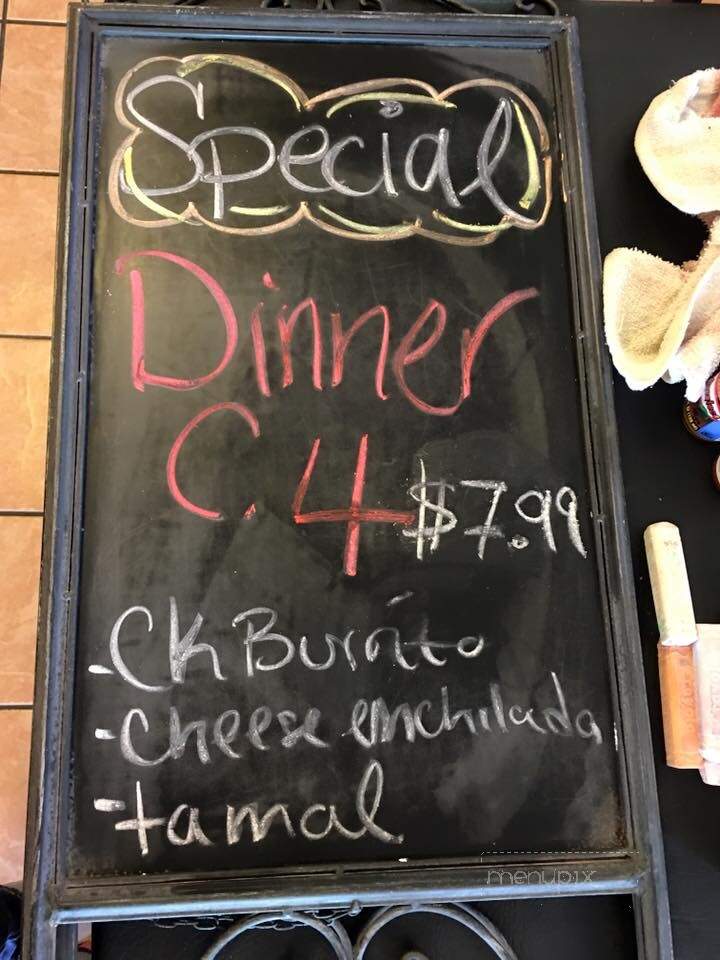 Special
Dinner
C.4 $7.99
-Ck Burrito
-Cheese enchilada
-tamal
menupix